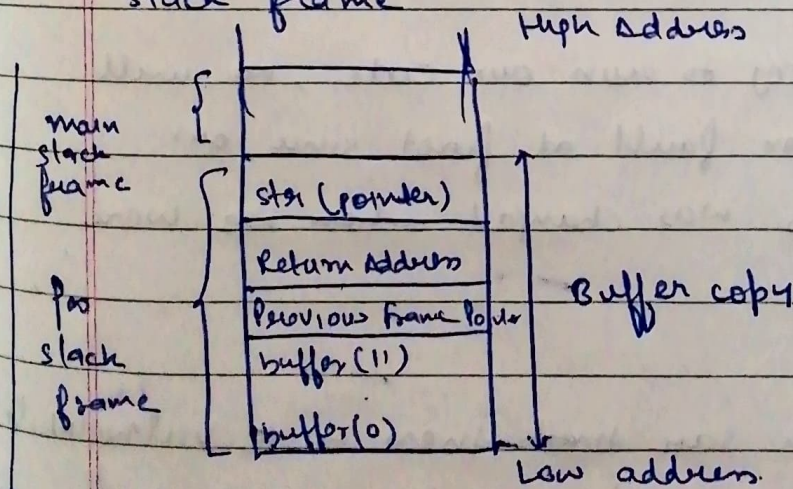 stack frame
High Address
main
stack
frame
str (pointer)
Return Address
Previous Frame Pointer
buffer (11)
buffer (0)
foo
stack
frame
Buffer copy
Low address